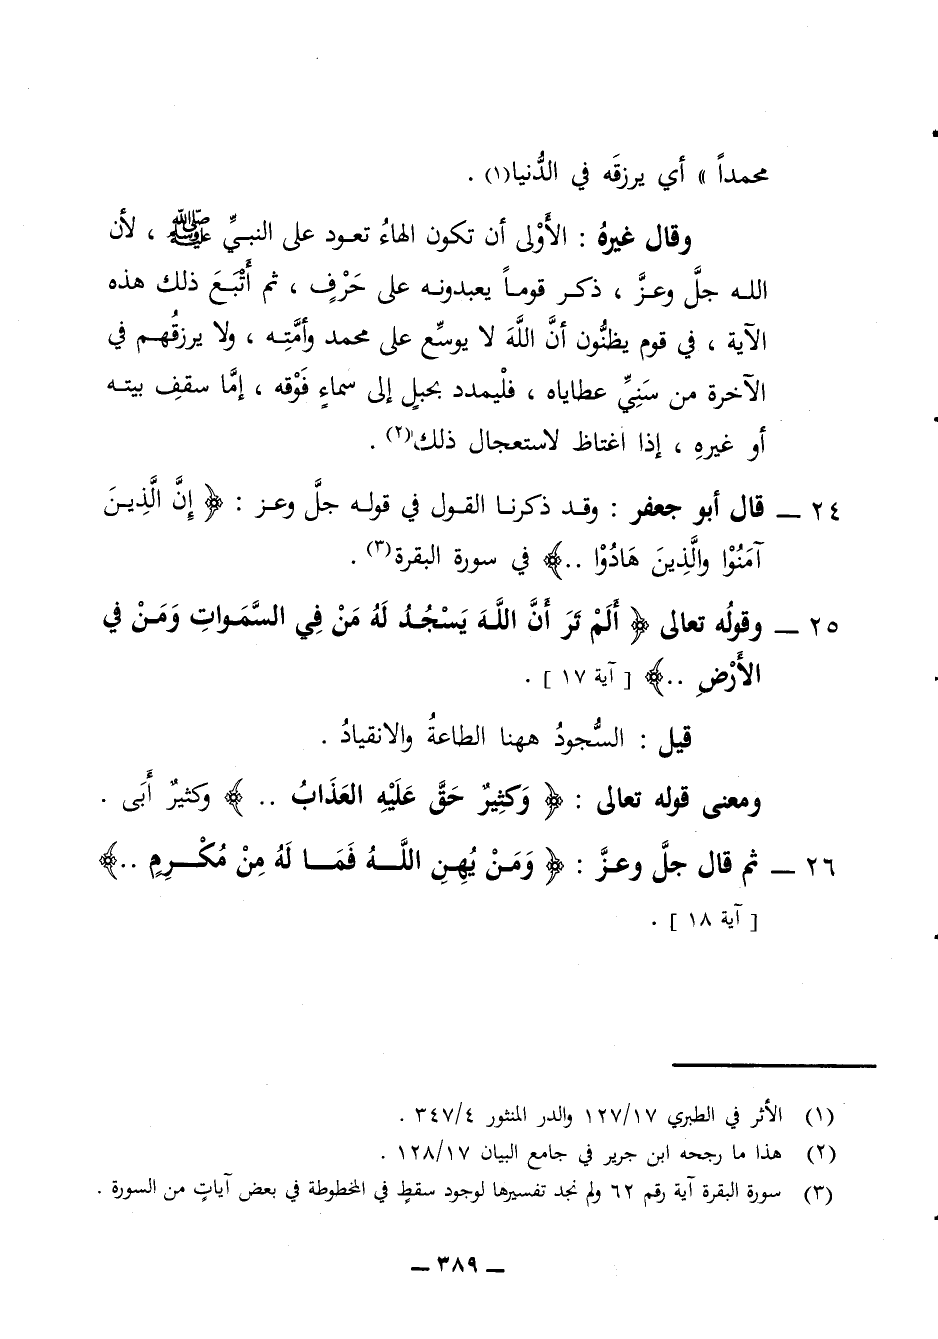 محمداً » أي يرزقَه في الدُّنيا(١) .
وقال غيرهُ : الأَوْلى أن تكون الهاءُ تعود على النبيِّ ﷺ ، لأن
الله جلَّ وعزَّ ، ذكر قوماً يعبدونه على حَرْفٍ ، ثم أَتْبَعَ ذلك هذه
الآية ، في قوم يظنُّون أنَّ اللَّهَ لا يوسِّع على محمد وأمَّتِه ، ولا يرزقُهم في
الآخرة من سَنِيِّ عطاياه ، فلْيمدد بحبلٍ إلى سماءٍ فَوْقه ، إمَّا سقفِ بيته
أو غيرهِ ، إذا اغتاظ لاستعجال ذلك(٢) .
٢٤ ـ قال أبو جعفر : وقد ذكرنا القول في قوله جلَّ وعز : ﴿ إِنَّ الَّذِينَ
آمَنُوْا والَّذِينَ هَادُوْا ..﴾ في سورة البقرة(٣) .
٢٥ ـ وقولُه تعالى ﴿ أَلَمْ تَرَ أَنَّ اللَّهَ يَسْجُدُ لَهُ مَنْ فِي السَّمَواتِ وَمَنْ في
الأَرْضِ ..﴾ [ آية ١٧ ] .
قيل : السُّجودُ ههنا الطاعةُ والانقيادُ .
ومعنى قوله تعالى : ﴿ وَكَثِيرٌ حَقَّ عَلَيْهِ العَذَابُ .. ﴾ وكثيرٌ أَبَى .
٢٦ ـ ثم قال جلَّ وعزَّ : ﴿ وَمَنْ يُهِنِ اللَّهُ فَمَا لَهُ مِنْ مُكْرِمٍ ..﴾
[ آية ١٨ ] .
(١) الأثر في الطبري ١٢٧/١٧ والدر المنثور ٣٤٧/٤ .
(٢) هذا ما رجحه ابن جرير في جامع البيان ١٢٨/١٧ .
(٣) سورة البقرة آية رقم ٦٢ ولم نجد تفسيرها لوجود سقطٍ في المخطوطة في بعض آياتٍ من السورة .
ـ ٣٨٩ ـ